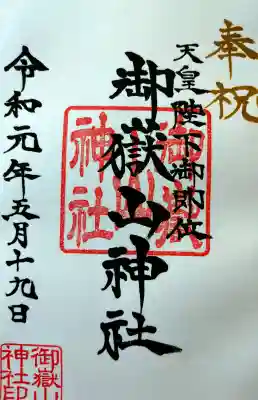 奉祝
天皇陛下御即位
御嶽山神社
御嶽山神社
令和元年五月十九日
御嶽山神社印